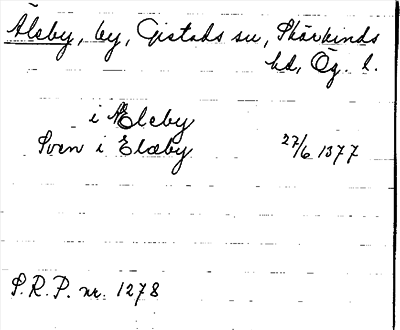 Älsby, by, Gistads sn, Skärkinds
hd, Ög. l.
i Eleby
Sven i Elæby 27/6 1377
S.R.P. nr. 1278